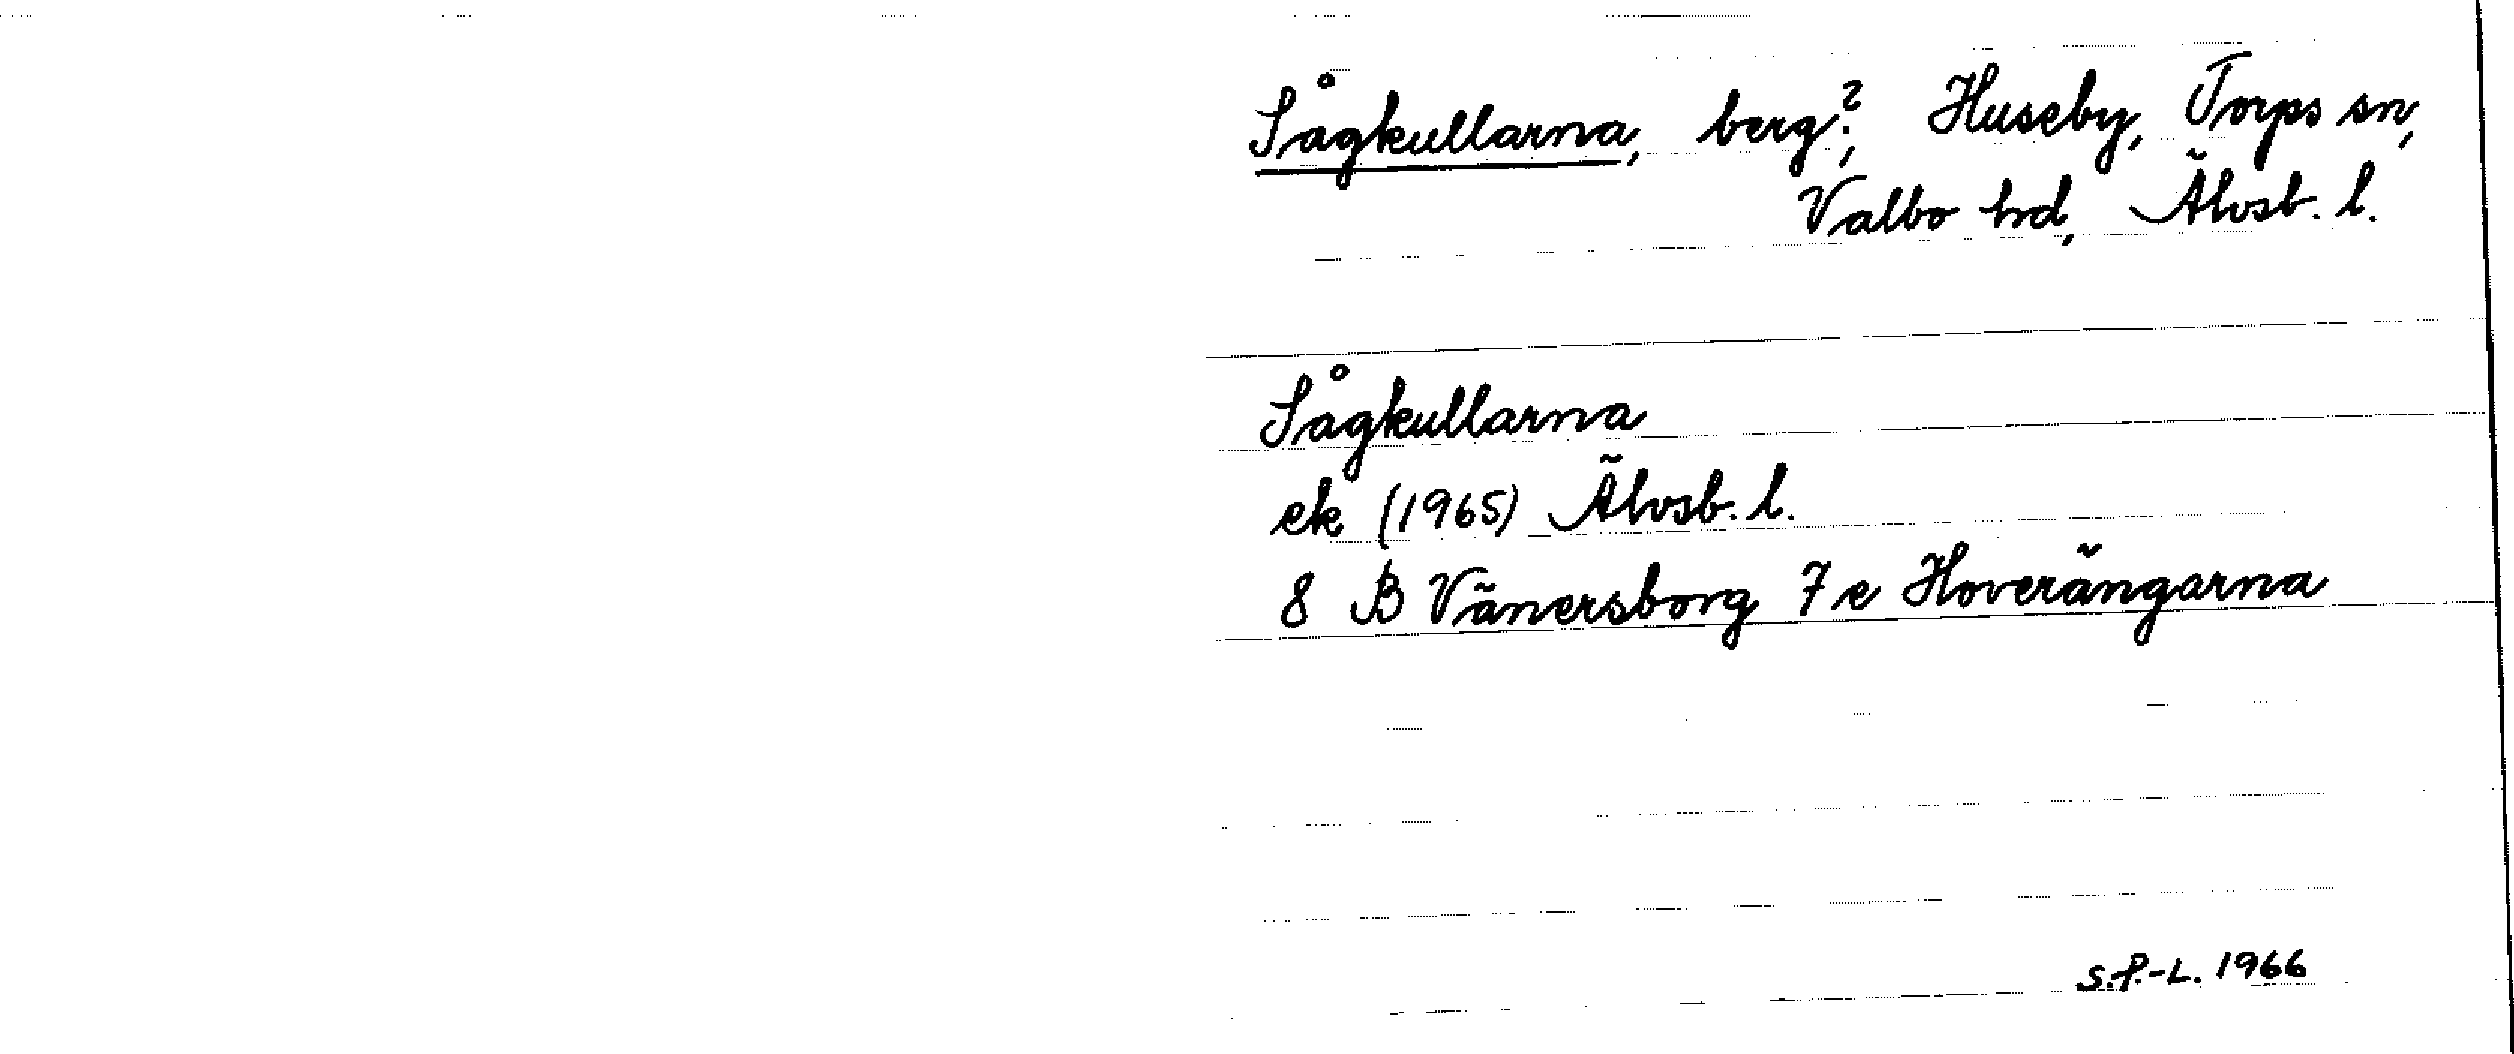 Sågkullarna, berg?, Huseby, Torps sn,
Valbo hd, Älvsb. l.
Sågkullarna
ek (1965) Älvsb. l.
8 B Vänersborg 7e Hoverängarna
S.P.-L. 1966